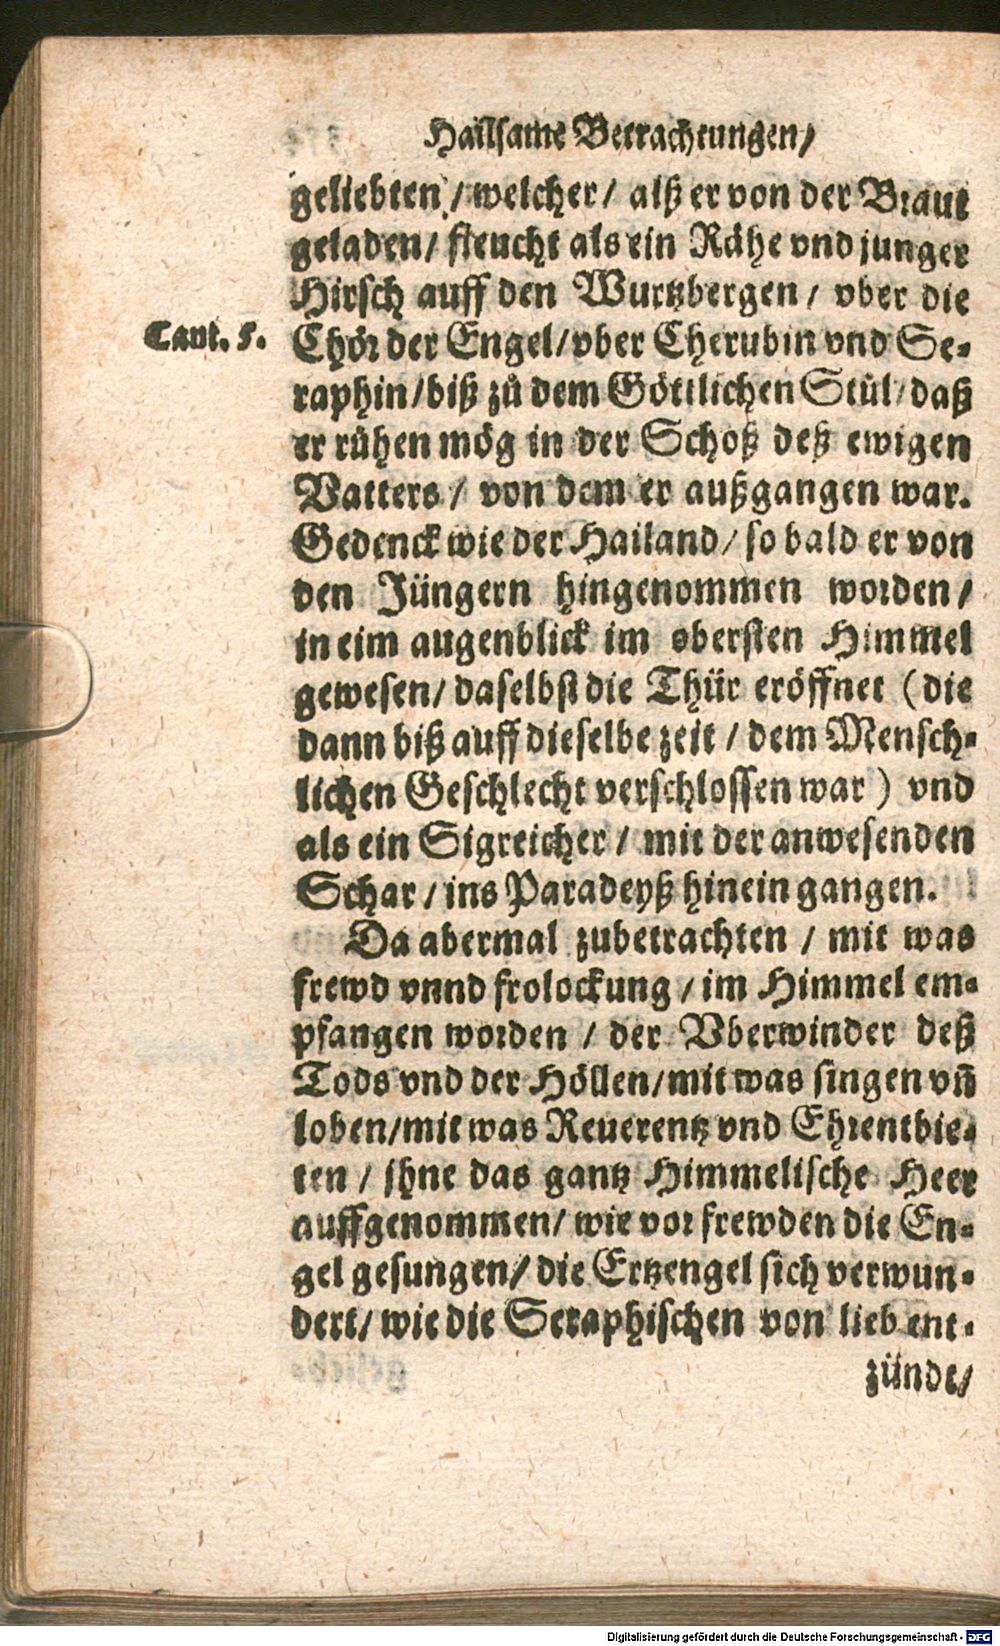 Hailsame Betrachtungen/
geliebten / welcher / alß er von der Braut
geladen / fleucht als ein Rähe vnd junger
Hirsch auff den Wurtzbergen / vber die
Cant. 5.
Chör der Engel / vber Cherubin vnd Se-
raphin / biß zů dem Göttlichen Stůl / daß
er růhen mög in der Schoß deß ewigen
Vatters / von dem er außgangen war.
Gedenck wie der Hailand / so bald er von
den Jüngern hingenommen worden /
in eim augenblick im obersten Himmel
gewesen / daselbst die Thür eröffnet (die
dann biß auff dieselbe zeit / dem Mensch-
lichen Geschlecht verschlossen war) vnd
als ein Sigreicher / mit der anwesenden
Schar / ins Paradeyß hinein gangen.
Da abermal zubetrachten / mit was
frewd vnnd frolockung / im Himmel em-
pfangen worden / der Vberwinder deß
Tods vnd der Höllen / mit was singen vñ
loben / mit was Reuerentz vnd Ehrentbie-
ten / jhne das gantz Himmelische Heer
auffgenommen / wie vor frewden die En-
gel gesungen / die Ertzengel sich verwun-
dert / wie die Seraphischen von lieb ent-
zündt/
Digitalisierung gefördert durch die Deutsche Forschungsgemeinschaft - DFG